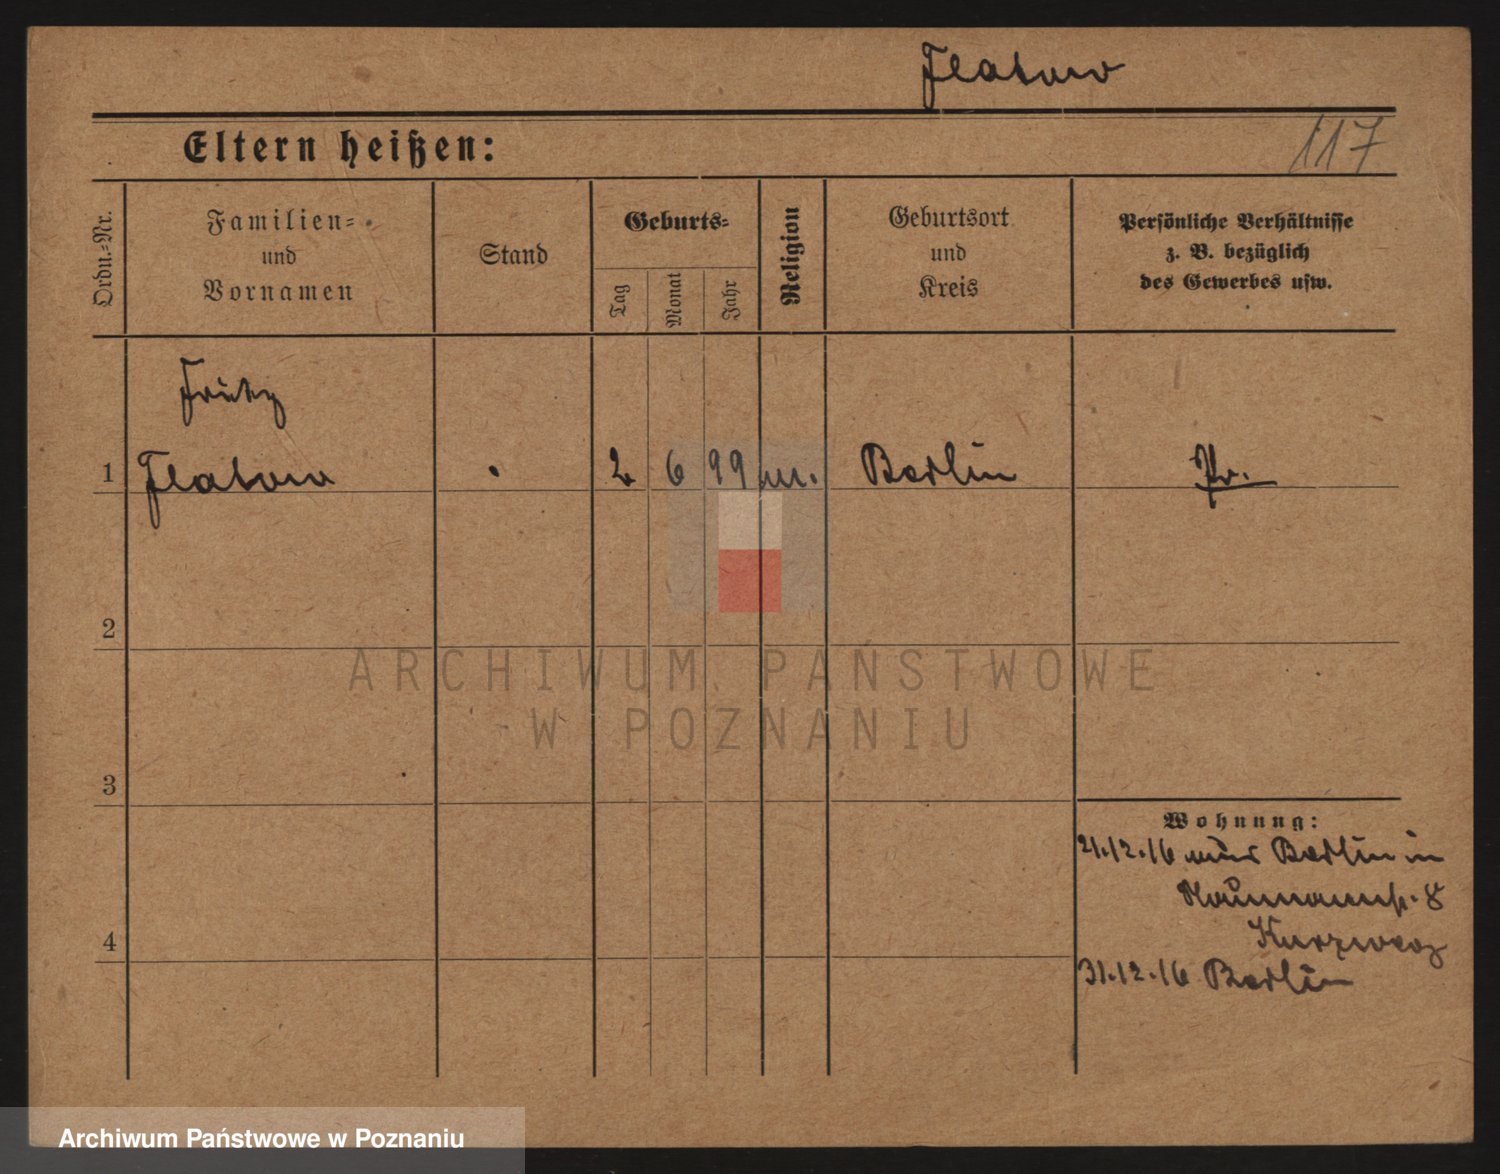 Flatow
Eltern heißen:
117
Ordn.-Nr.
Familien-
und
Vornamen
Stand
Geburts-
Tag
Monat
Jahr
Religion
Geburtsort
und
Kreis
Persönliche Verhältnisse
z. B. bezüglich
des Gewerbes usw.
Fritz
1 Flatow 2 6 99 m. Berlin Pr.
2
3
4
Wohnung:
21.12.16 aus Berlin in
Naumannstr. 8
31.12.16 Berlin
ARCHIWUM PAŃSTWOWE
W POZNANIU
Archiwum Państwowe w Poznaniu